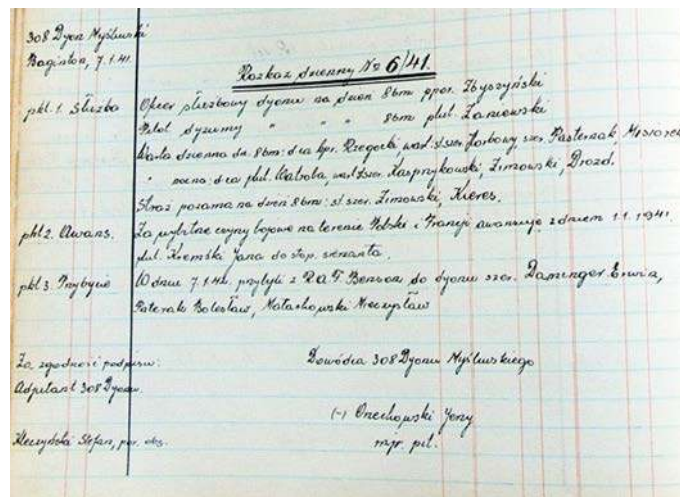 308 Dyon Myśliwski
Baginton, 7.1.41.
Rozkaz dzienny No 6/41.
pkt. 1. Służba
Oficer służbowy dyonu na dzień 8bm ppor. Zbyszyński
Pilot dyżurny " " " 8bm plut. Zaniewski
Warta dzienna dn. 8bm: d-ca kpr. Rzegocki, wart. st. szer. Horbowy, szer. Pasternak, Misiorek
" nocna: d-ca plut. Watoła, wart. szer. Kasprzykowski, Zimowski, Drozd.
Straż pożarna na dzień 8bm: st. szer. Zimowski, Kieres.
pkt 2. Awans.
Za wybitne czyny bojowe na terenie Polski i Francji awansuję z dniem 1.1.1941
plut. Kremskiego Jana do stop. sierżanta.
pkt 3. Przybycie
W dniu 7.1.41. przybyli z R.A.F. Benson do dyonu szer. Daminger Erwin,
Paterak Bolesław, Małachowski Mieczysław
Za zgodność podpisu:
Dowódca 308 Dyonu Myśliwskiego
Adjutant 308 Dyonu.
(-) Orzechowski Jerzy
Kleczyński Stefan, por. obs.
mjr. pil.